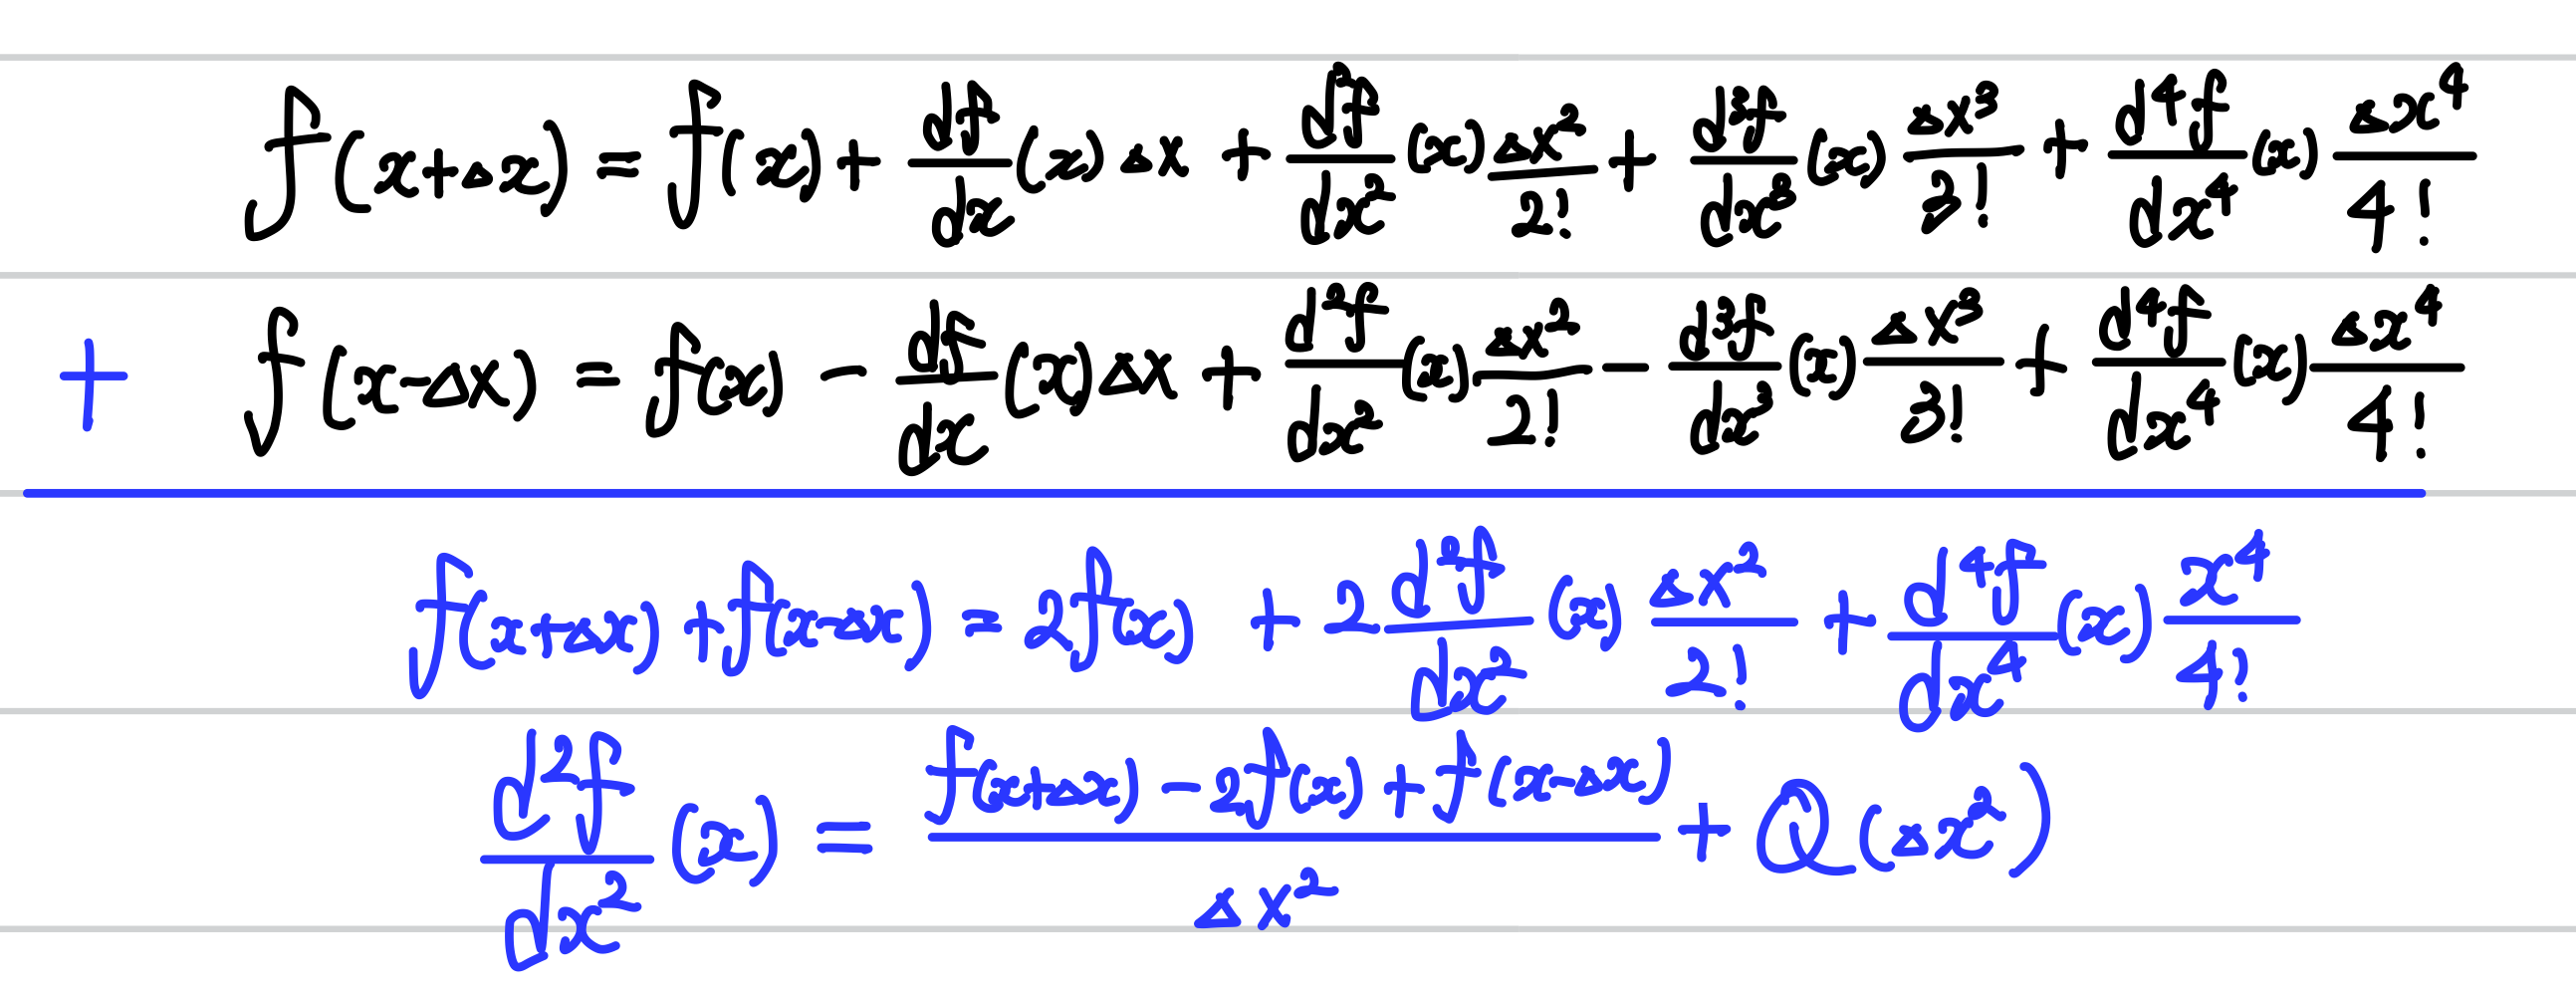 f(x+Δx) = f(x) + df/dx (x) Δx + d²f/dx² (x) Δx²/2! + d³f/dx³ (x) Δx³/3! + d⁴f/dx⁴ (x) Δx⁴/4!
+ f(x-Δx) = f(x) - df/dx (x) Δx + d²f/dx² (x) Δx²/2! - d³f/dx³ (x) Δx³/3! + d⁴f/dx⁴ (x) Δx⁴/4!
f(x+Δx) + f(x-Δx) = 2f(x) + 2 d²f/dx² (x) Δx²/2! + d⁴f/dx⁴ (x) x⁴/4!
d²f/dx² (x) = (f(x+Δx) - 2f(x) + f(x-Δx))/Δx² + O(Δx²)